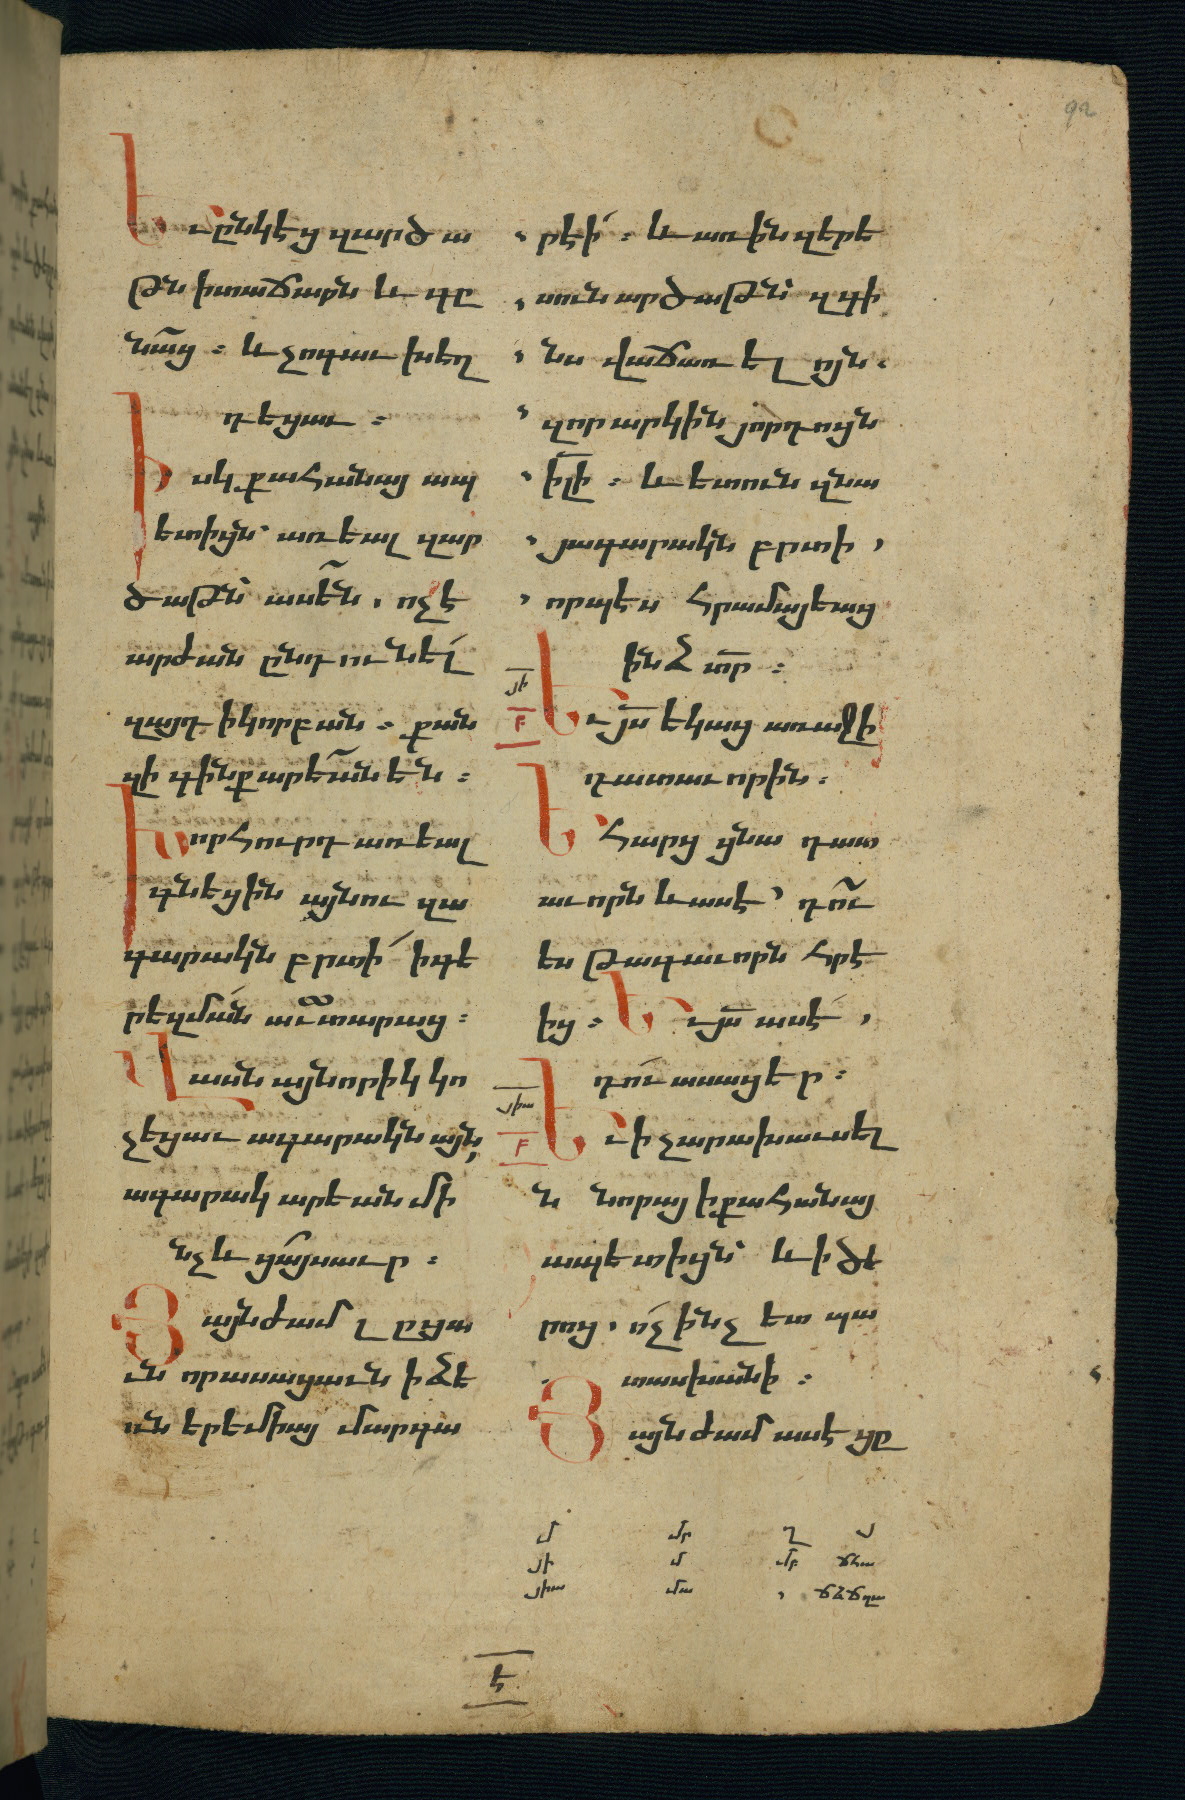 92
Եւ ընկէց զարծա
թն ի տաճարն և գը
նաց ։ և չոգաւ խեղ
դեցաւ ։
Իսկ քահանայ ապ
ետիցն՝ առեալ զար
ծաթն՝ ասեն, ոչ է
արժան ընդունել
զայդ ի կորբան ։ քան
զի գինք արեանեն ։
Խորհուրդ առեալ
գնեցին այնու զա
գարակն բրտի ի գե
րեզման աւտարաց ։
Վասն այնորիկ կո
չեցաւ ագարակն այն,
ագարակ արեան մի
նչև ցայսաւր ։
Յայնժամ լըցա
ւն որ ասացաւն ի ձե
ռն երեմիայ մարգա
րէի ։ և առին զերե
սուն արծաթն՝ զգի
նս վաճառել ոյն.
զոր արկին յորդոյն
իլի ։ և ետուն զնա
յագարակն բրտի,
որպէս հրամայեաց
ինձ տր ։
ՅԻ
Բ
Եւ յս եկաց առաջի
դատաւորին ։
Եհարց ցնա դատ
աւորն և ասէ՝ դու
ես թագաւորն հրէ
ից ։ Եւ յս ասէ,
դու ասացեր ։
ՅԻԱ
Բ
Եւ ի չարախաւսել
ն նորայ ի քահանայ
ապետիցն՝ և ի ծե
րոց, ոչինչ ետ պա
տասխանի ։
Յայնժամ ասէ ցը
մ մր ղ յ
յի մ մբ ճհա
յիա մա , ճձճղա
Է